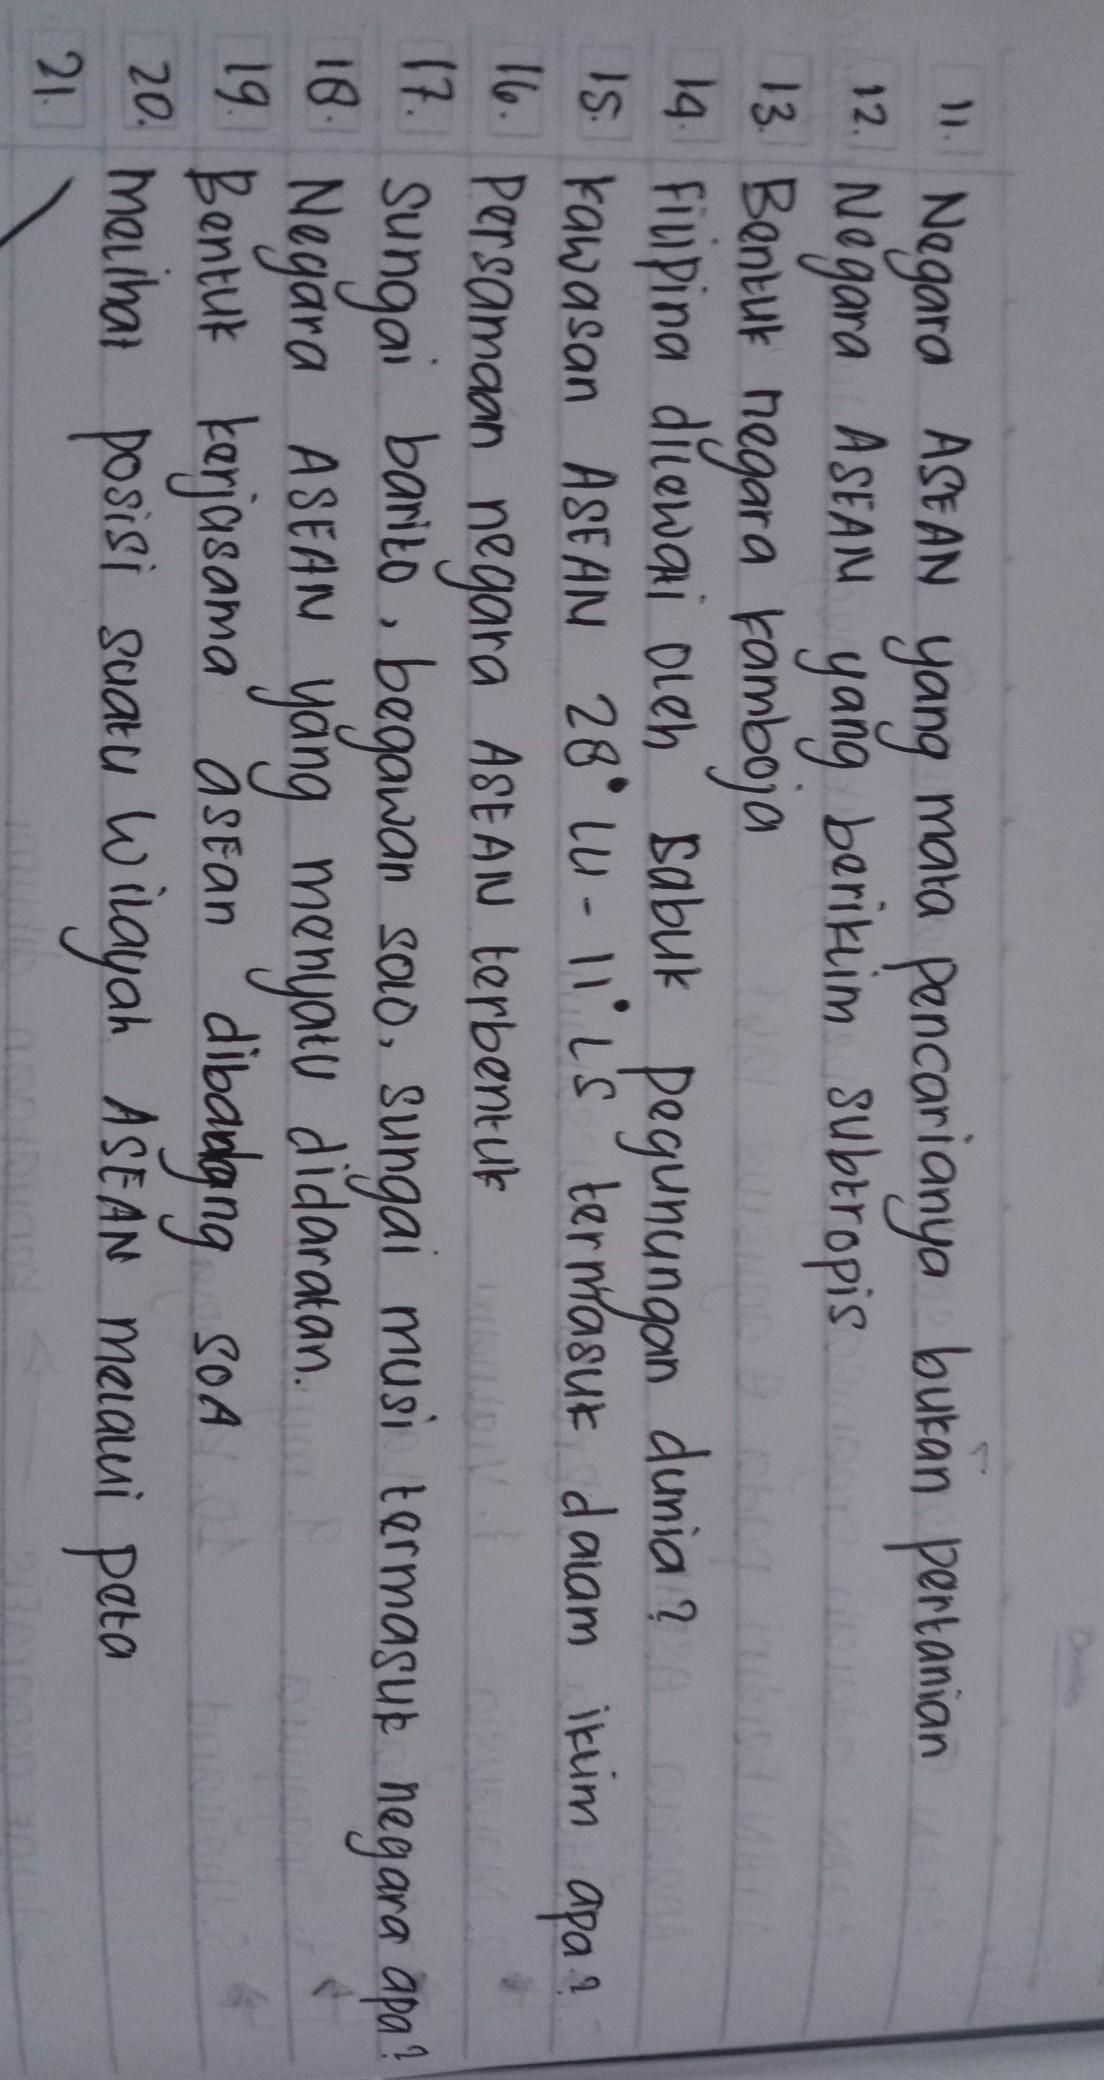 11. Negara ASEAN yang mata pencarianya bukan pertanian
12. Negara ASEAN yang beriklim subtropis
13. Bentuk negara kamboja
14. Filipina dilewati oleh Sabuk pegunungan dunia?
15. kawasan ASEAN 28° LU - 11° LS termasuk dalam iklim apa?
16. Persamaan negara ASEAN terbentuk
17. Sungai barito, begawan solo, sungai musi termasuk negara apa?
18. Negara ASEAN yang menyatu didaratan.
19. Bentuk kerjasama asEan dibadang SOA
20. Melihat posisi suatu wilayah ASEAN melalui peta
21.